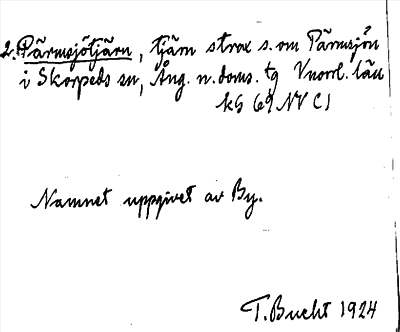 2. Pärmsjötjärn, tjärn strax s. om Pärmsjön
i Skorpeds sn, Ång. n. doms. tg Vnorrl. län
kG 69 NV C1
Namnet uppgivet av By.
T. Bucht 1924